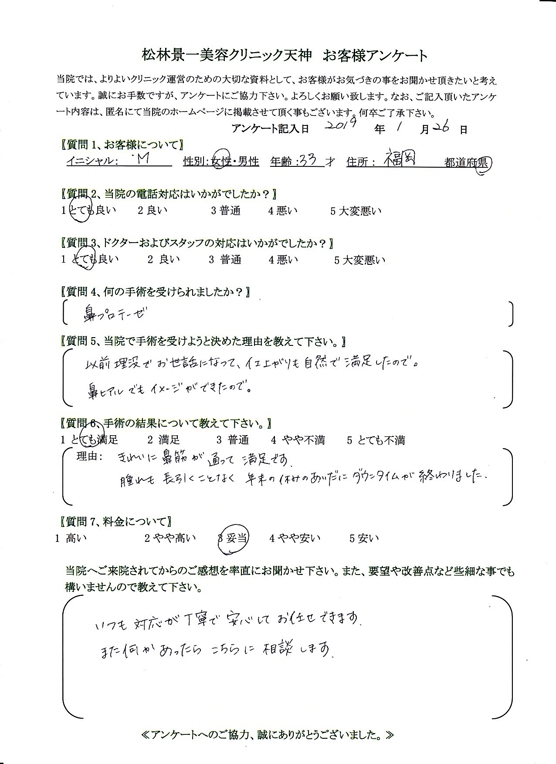 松林景一美容クリニック天神　お客様アンケート
当院では、よりよいクリニック運営のための大切な資料として、お客様がお気づきの事をお聞かせ頂きたいと考え
ています。誠にお手数ですが、アンケートにご協力下さい。よろしくお願い致します。なお、ご記入頂いたアンケ
ート内容は、匿名にて当院のホームページに掲載させて頂く事もございます。何卒ご了承下さい。
アンケート記入日　2019　年　1　月　26　日
〖質問 1、お客様について〗
イニシャル：　M　性別：女性・男性　年齢：33 才　住所：　福岡　都道府県
〖質問 2、当院の電話対応はいかがでしたか？〗
1 とても良い　2 良い　3 普通　4 悪い　5 大変悪い
〖質問 3、ドクターおよびスタッフの対応はいかがでしたか？〗
1 とても良い　2 良い　3 普通　4 悪い　5 大変悪い
〖質問 4、何の手術を受けられましたか？〗
鼻プロテーゼ
〖質問 5、当院で手術を受けようと決めた理由を教えて下さい。〗
以前埋没でお世話になって、仕上がりも自然で満足したので。
鼻ヒアルでもイメージができたので。
〖質問 6、手術の結果について教えて下さい。〗
1 とても満足　2 満足　3 普通　4 やや不満　5 とても不満
理由：　きれいに鼻筋が通って満足です。
腫れも長引くことなく年末の休みのあいだにダウンタイムが終わりました。
〖質問 7、料金について〗
1 高い　2 やや高い　3 妥当　4 やや安い　5 安い
当院へご来院されてからのご感想を率直にお聞かせ下さい。また、要望や改善点など些細な事でも
構いませんので教えて下さい。
いつも対応が丁寧で安心してお任せできます。
また何かあったらこちらに相談します。
≪アンケートへのご協力、誠にありがとうございました。≫